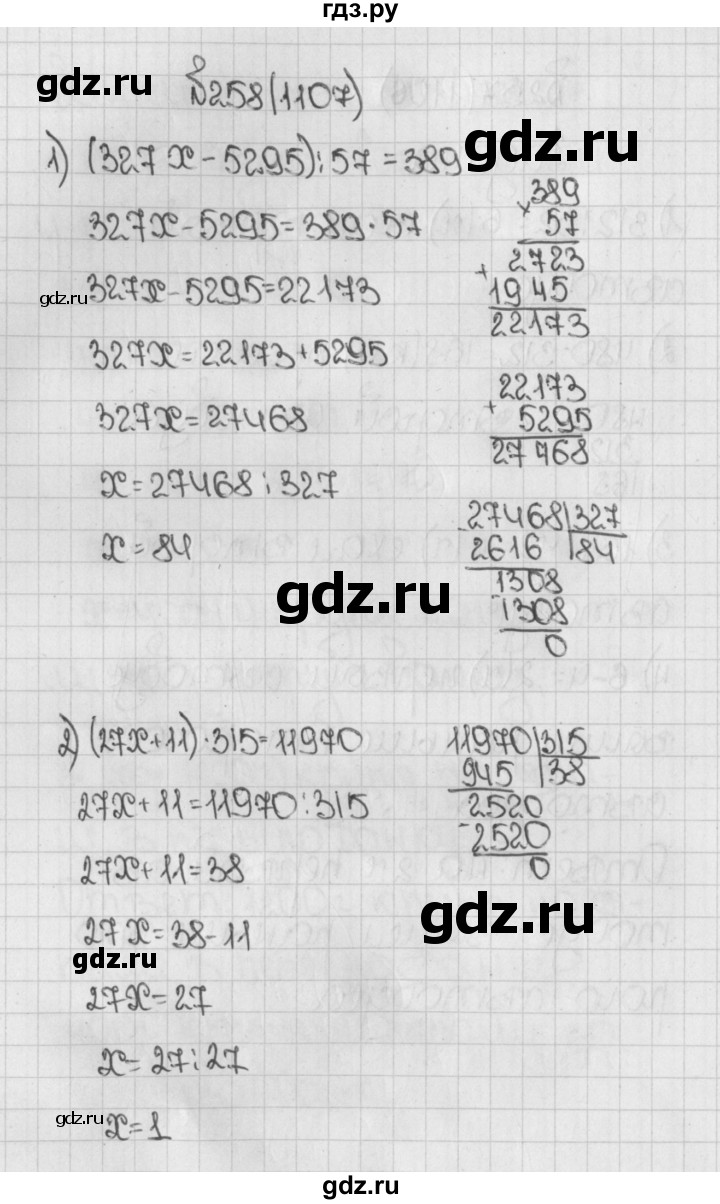 гдз.ру
gdz.ru
№258(1107)
gdz.ru
1) (327x-5295):57=389
327x-5295=389·57
gdz.ru
327x-5295=22173
327x=22173+5295
327x=27468
x=27468:327
x=84
×389
57
2723
+
1945
22173
22173
+
5295
27468
-27468|327
2616 |84
-1308
1308
0
gdz.ru
2) (27x+11)·315=11970
27x+11=11970:315
27x+11=38
27x=38-11
gdz.ru
27x=27
x=27:27
gdz.ru
x=1
11970|315
945 |38
2520
-2520
0
gdz.ru
gdz.ru